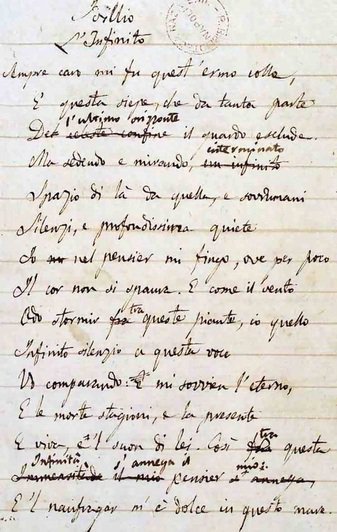 Idillio
L'Infinito
Sempre caro mi fu quest'ermo colle,
E questa siepe, che da tanta parte
l'ultimo orizzonte
Del celeste confine il guardo esclude.
interminato
Ma sedendo e mirando, un infinito
Spazio di là da quella, e sovrumani
Silenzi, e profondissima quiete
Io nel pensier mi fingo, ove per poco
Il cor non si spaura. E come il vento
Odo stormir fra tra queste piante, io quello
Infinito silenzio a questa voce
Vo comparando: E mi sovvien l'eterno,
E le morte stagioni, e la presente
E viva, e 'l suon di lei. Così fra tra questa
Infinità s'annega il mio:
Immensitade il mio pensier s'annega,
E 'l naufragar m'è dolce in questo mare.